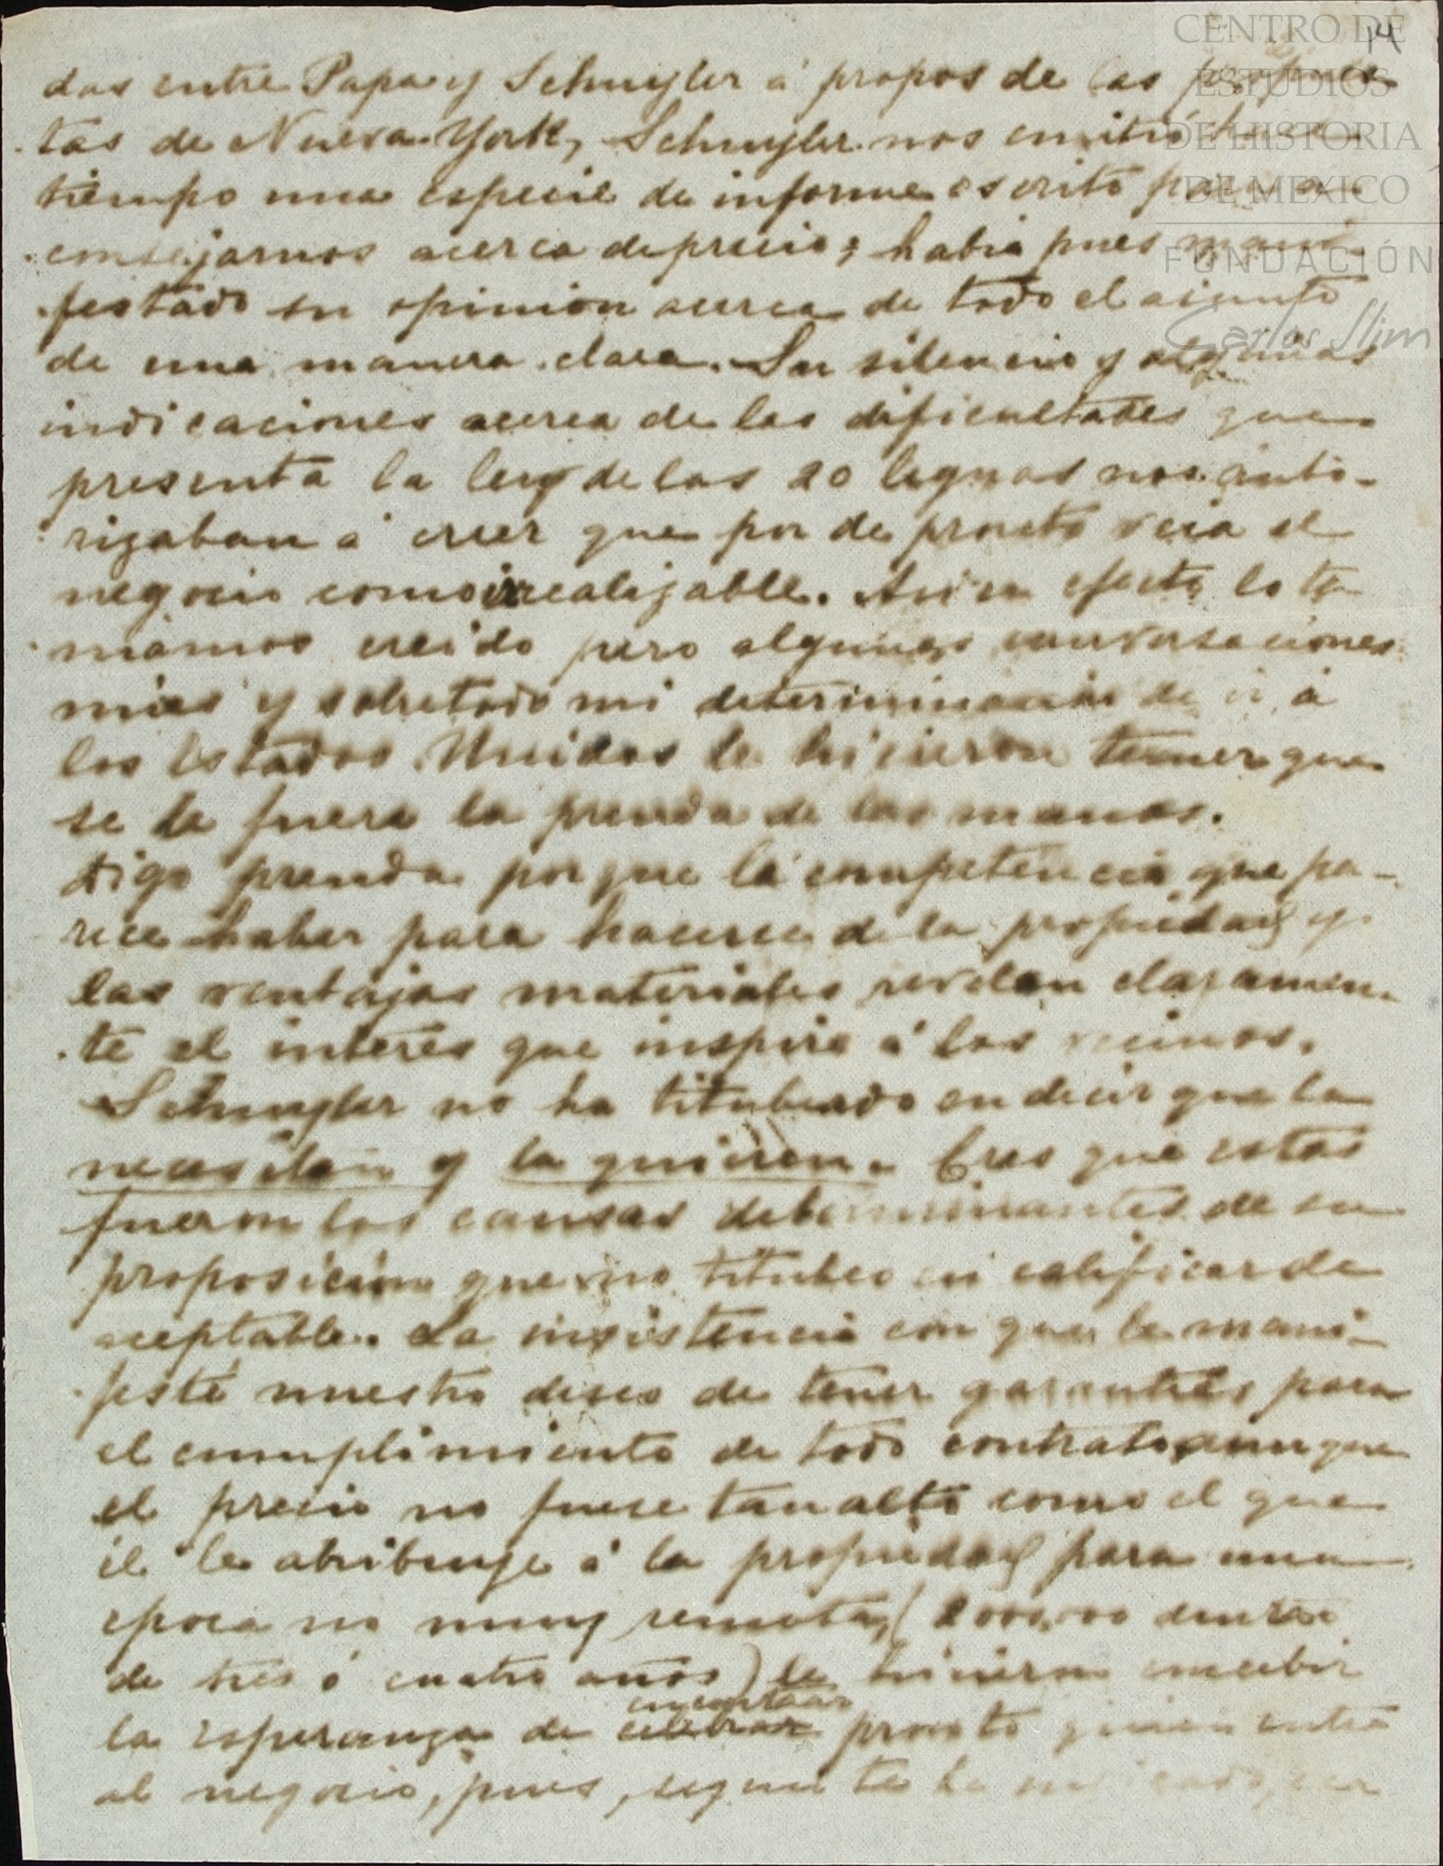 14
CENTRO DE
ESTUDIOS
DE HISTORIA
DE MEXICO
FUNDACIÓN
Carlos Slim
das entre Papa y Schuyler á propos de las propues-
tas de Nueva York, Schuyler nos emitió hace
tiempo una especie de informe escrito para a-
consejarnos acerca de precio; habia pues mani-
festado su opinion acerca de todo el asunto
de una manera clara. Su silencio y algunas
indicaciones acerca de las dificultades que
presenta la ley de las 20 leguas nos auto-
rizaban á creer que por de pronto veia el
negocio como irrealizable. Asi en efecto lo te-
niamos creido pero algunas conversaciones
mias y sobretodo mi determinacion de ir á
los Estados Unidos le hicieron temer que
se le fuera la prenda de las manos.
Digo prenda porque la competencia que pa-
rece haber para hacerse de la propiedad y
las ventajas materiales revelan claramen-
te el interes que inspira á los vecinos.
Schuyler no ha titubeado en decir que la
necesitan y la quieren. Creo que estas
fueron las causas determinantes de su
proposicion que no titubeo en calificar de
aceptable. La insistencia con que le mani-
festé nuestro deseo de tener garantias para
el cumplimiento de todo contrato aunque
el precio no fuese tan alto como el que
él le atribuye á la propiedad para una
epoca no muy remota, (2000,000 dentro
de tres ó cuatro años) le hicieron concebir
la esperanza de encontrar pronto quien entre
al negocio, pues, segun te he indicado,